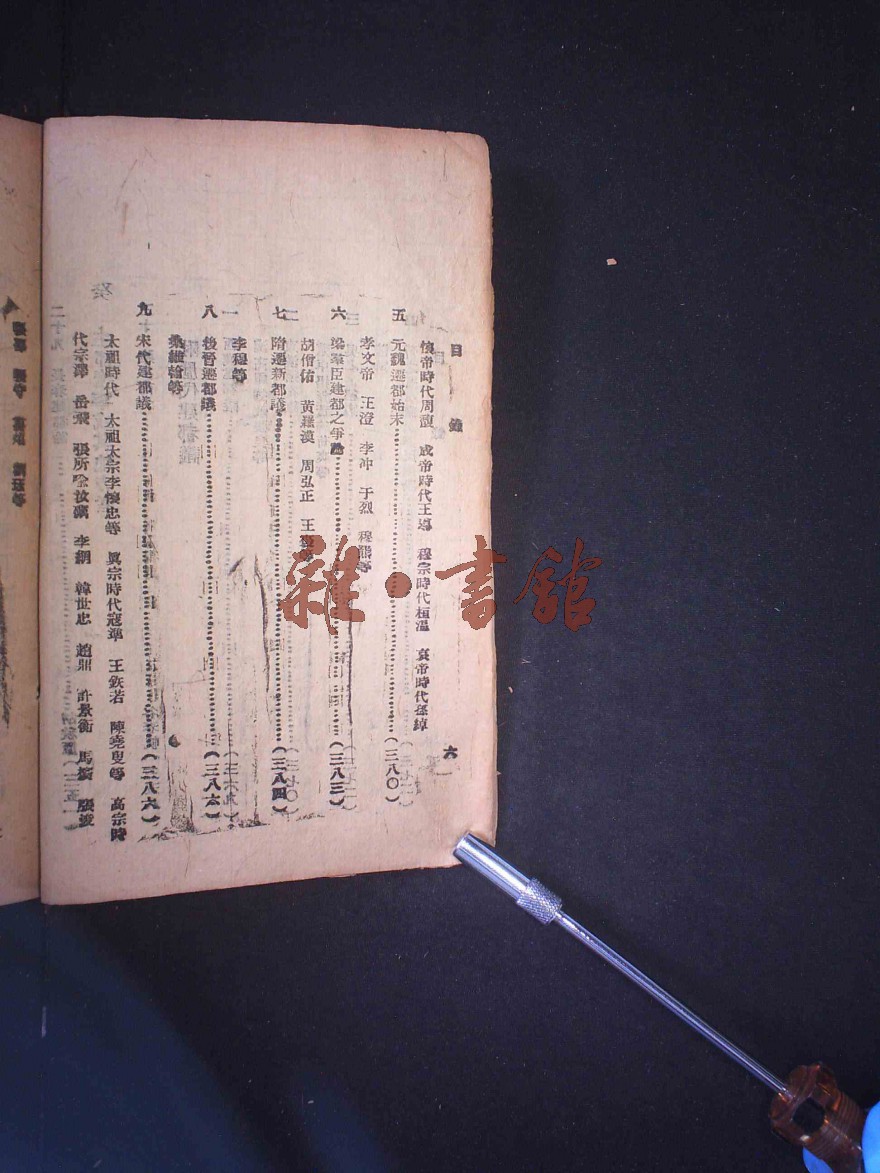 目錄 六
懷帝時代周馥 成帝時代王導 穆宗時代桓溫 哀帝時代孫綽
五 元魏遷都始末……(三八〇)
孝文帝 王澄 李冲 于烈 穆羆等
六 梁羣臣建都之爭論……(三八三)
胡僧佑 黃羅漢 周弘正 王襃等
七 隋遷新都議……(三八四)
李穆等
八 後晉遷都議……(三八六)
桑維翰等
九 宋代建都議……(三八六)
太祖時代 太祖太宗李懷忠等 眞宗時代寇準 王欽若 陳堯叟等 高宗時
代宗澤 岳飛 張所 汝礪 李綱 韓世忠 趙鼎 許景衡 馬擴 張浚
雜·書館